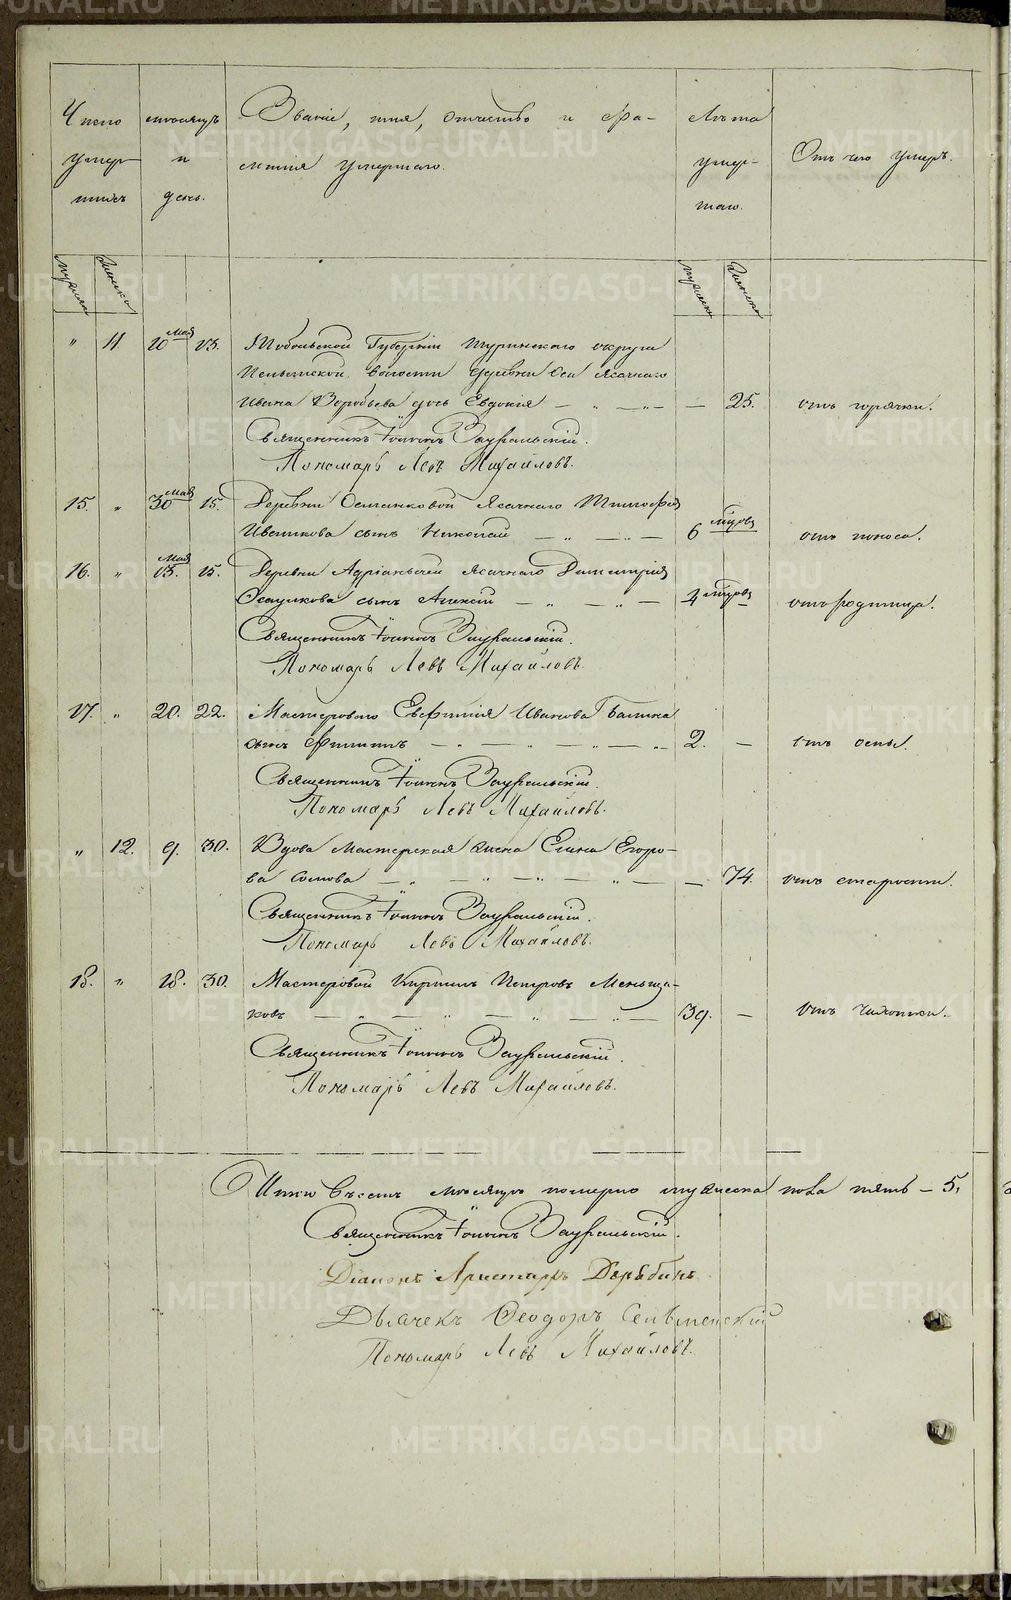 Число умер- шихъ
мѣсяцъ и день.
Званіе, имя, отчество и фа-
милія умершаго.
Лѣта умер- шаго.
Отъ чего умеръ.
мужска женска
мужска женска
" 11 10 Мая 13. Тобольской Губерніи Туринскаго округа
Пелымской волости деревни Оси Ясачнаго
Ивана Воробьева дочь Евдокія — " — " — — 25. отъ горячки.
Священникъ Іоаннъ Зауральскій.
Пономарь Левъ Михайловъ.
15. " 30 Мая 15. Деревни Ясачнаго Тимофея
Иванкова сынъ Николай — " — " — 6 мѣсяцовъ отъ поноса.
16. " 13. Мая 15. Деревни Ясачнаго Димитрія
Осаулкова сынъ Алексій — " — " — 4 мѣсяцовъ отъ родимца.
Священникъ Іоаннъ Зауральскій.
Пономарь Левъ Михайловъ.
17. " 20. 22. Мастероваго Евфимія Иванова
сынъ Филиппъ — " — " — " — " 2. — отъ оспы.
Священникъ Іоаннъ Зауральскій.
Пономарь Левъ Михайловъ.
" 12. 9. 30. Вдова Мастерская жена Елена Егоро-
ва Сомова — " — " — " — " — — 74. отъ старости.
Священникъ Іоаннъ Зауральскій.
Пономарь Левъ Михайловъ.
18. " 18. 30. Мастеровой Кирилъ Петровъ Меньща-
ковъ — " — " — " — " — 39. — отъ чахотки.
Священникъ Іоаннъ Зауральскій.
Пономарь Левъ Михайловъ.
Итого въ семъ мѣсяцѣ померло мужеска пола пять – 5,
Священникъ Іоаннъ Зауральскій.
Діаконъ Аристархъ Дерябинъ.
Дьячекъ Ѳеодоръ Сельменскій
Пономарь Левъ Михайловъ.
METRIKI.GASO-URAL.RU